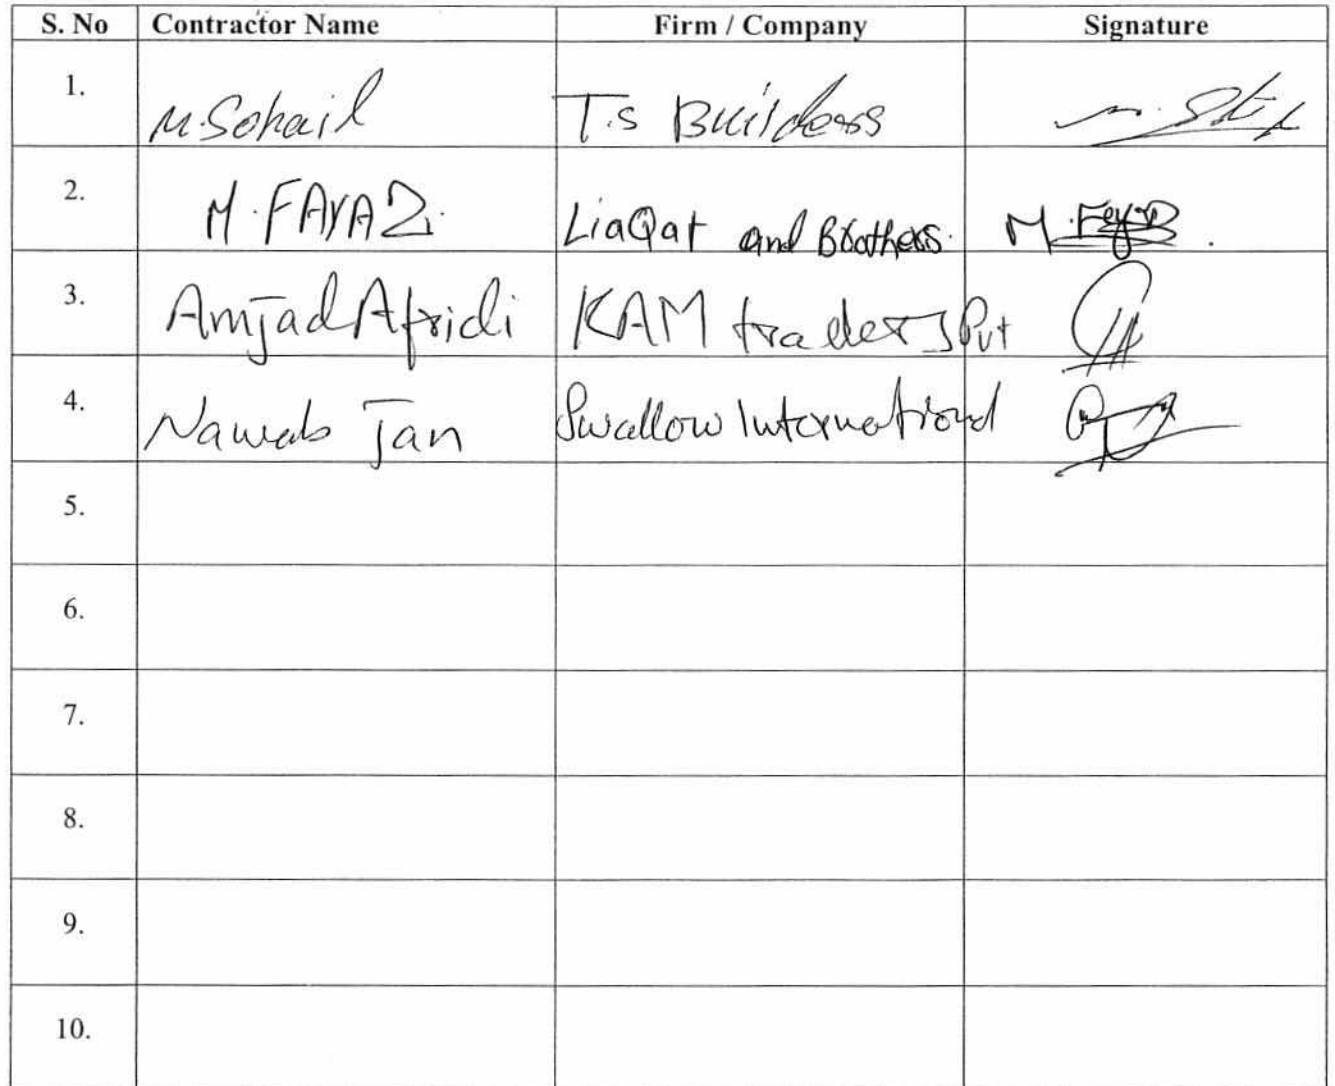 S. No Contractor Name Firm / Company Signature
1. M. Sohail T.S Builders
2. M. FAYAZ LiaQat and Brothers. M. Feyaz
3. Amjad Afridi KAM traders Pvt
4. Nawab Jan Swallow International
5.
6.
7.
8.
9.
10.